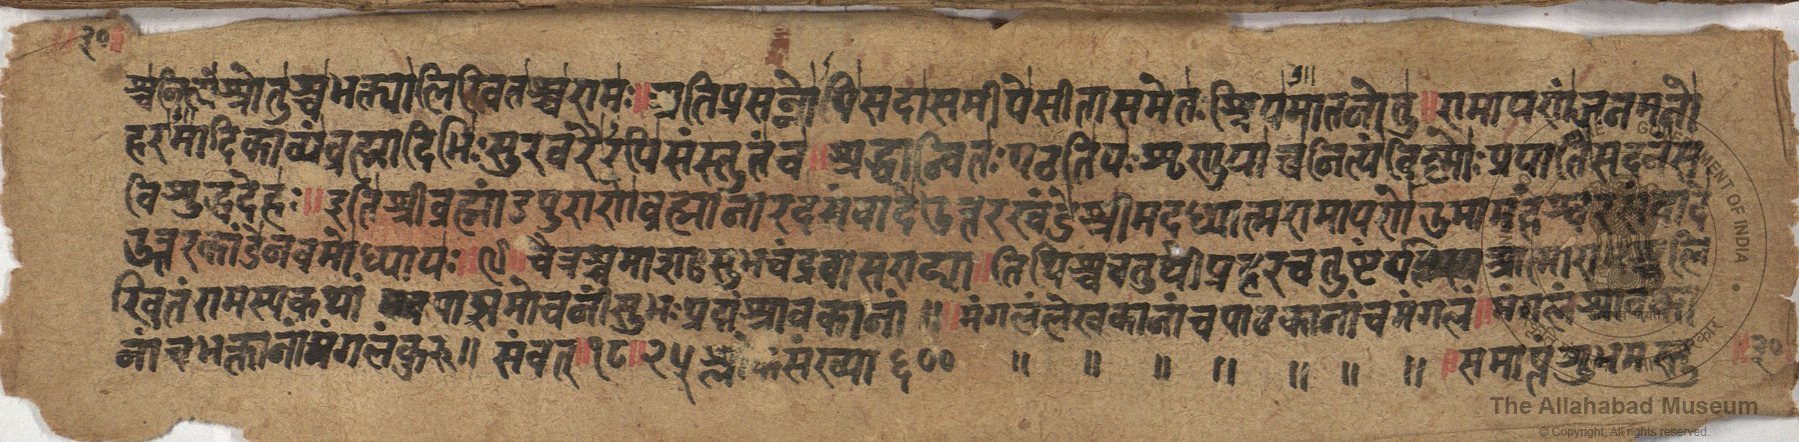 ३०
श्च नित्यं श्रोतुश्च भक्त्या लिखितश्च रामः॥ अतिप्रसन्नोपि सदा समीपे सीता समेतः श्रियमातनोतु॥ रामायणं जनमनो
हरमादिकाव्यं ब्रह्मादिभिः सुरवरैरपि संस्तुतं च॥ श्रद्धान्वितः पठति यः श्रृणुयाच्च नित्यं विष्णोः प्रयाति सदनं स
विशुद्धदेहः॥ इति श्रीब्रह्मांडपुराणे ब्रह्मानारदसंवादे उत्तरखंडे श्रीमदध्यात्मरामायणे उमामहेश्वरसंवादे
उत्तरकांडे नवमोध्यायः॥९॥ चैत्र शुक्लमा सुभ चंद्रवासर तिथिश्च चतुर्थी प्रहरचतुष्टय लि
खितं रामस्य कथां पाप मोचनी सुभः श्रावकानां॥ मंगलं लेखकानां च पाठकानां च मंगलं॥ मंगलं
नां च भक्तानां मंगलं कुरु॥ संवत्॥१८॥२५ श्लोकसंख्या ६०० ॥ ॥ ॥ ॥ ॥ ॥ ॥ समाप्त शुभमस्तु
३०
The Allahabad Museum
© Copyright, All rights reserved.